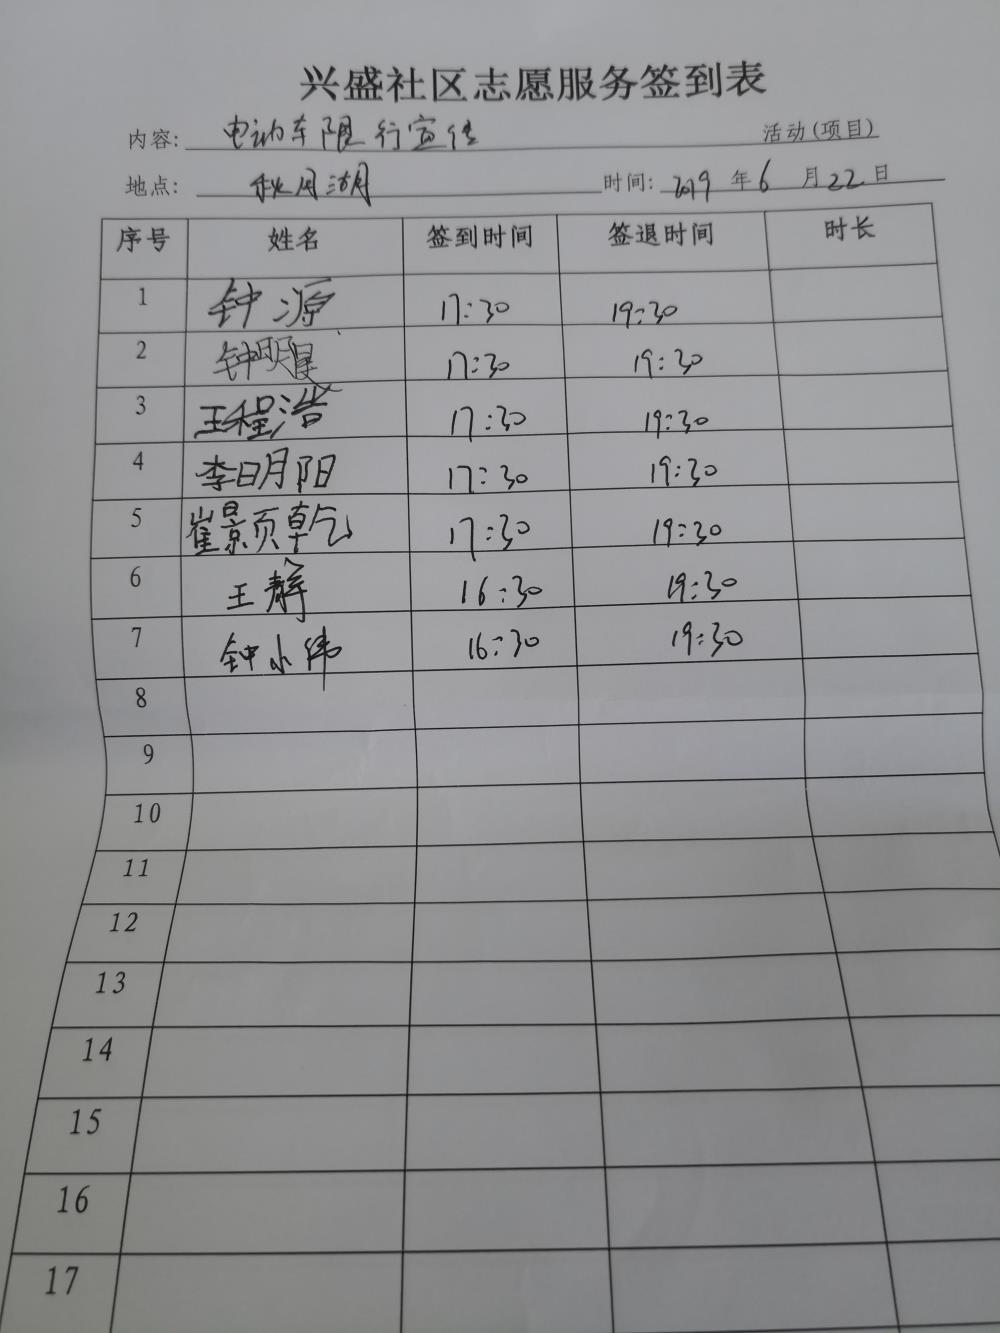 兴盛社区志愿服务签到表
内容: 电动车限行宣传 活动(项目)
地点: 秋月湖 时间: 2019 年 6 月 22 日
序号 姓名 签到时间 签退时间 时长
1 钟源 17:30 19:30
2 钟 17:30 19:30
3 王程浩 17:30 19:30
4 李明阳 17:30 19:30
5 崔颢乾 17:30 19:30
6 王静 16:30 19:30
7 钟小纬 16:30 19:30
8
9
10
11
12
13
14
15
16
17